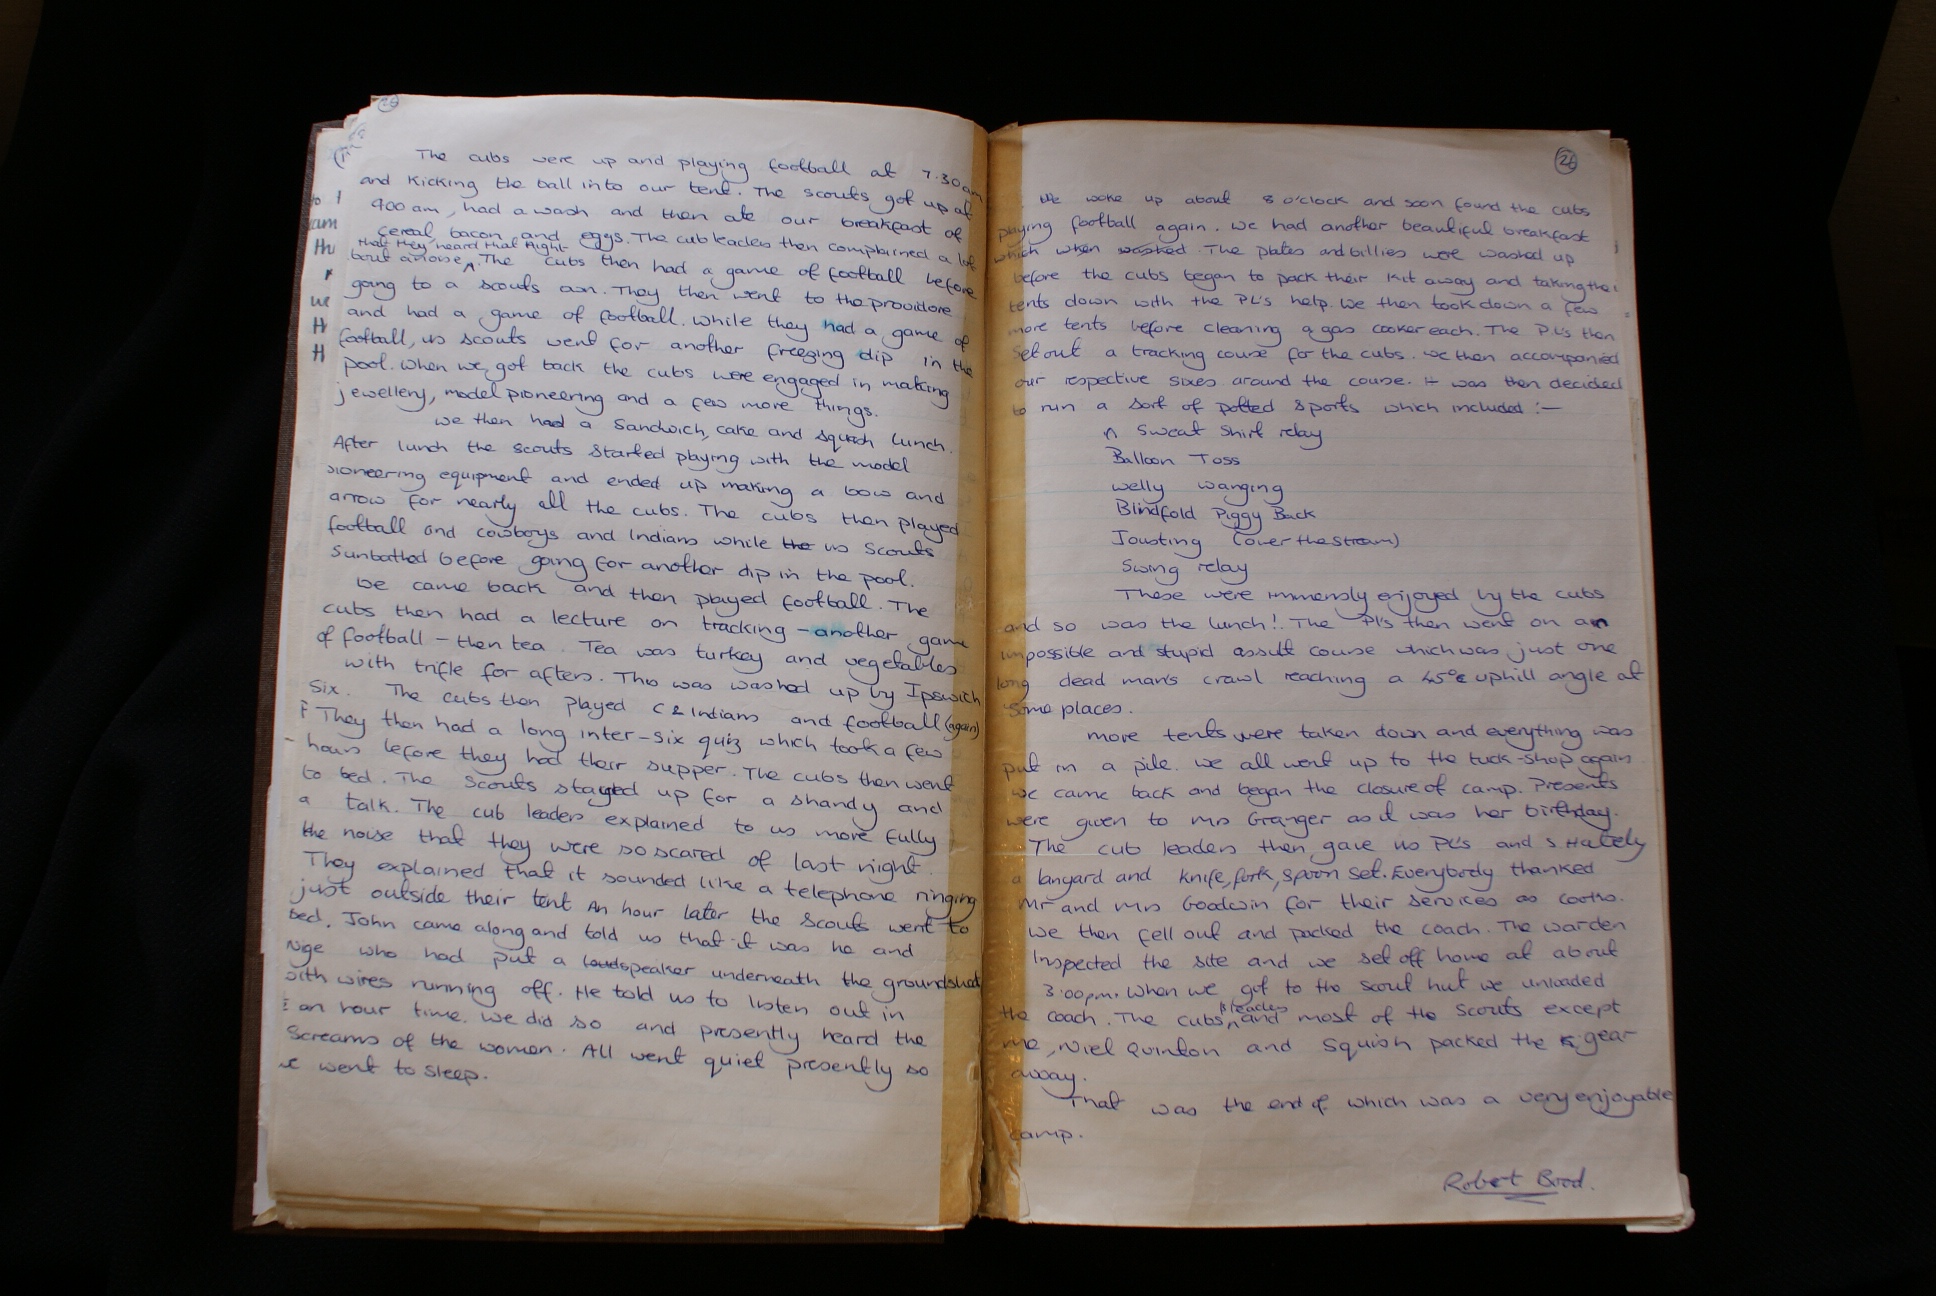 25
The cubs were up and playing football at 7.30 am
and kicking the ball into our tent. The scouts got up at
900 am, had a wash and then ate our breakfast of
cereal, bacon and eggs. The cub leaders then complained a lot
that they heard that night
bout a noise ^. The cubs then had a game of football before
going to a scouts own. They then went to the providore
and had a game of football. While they had a game of
football, us scouts went for another freezing dip in the
pool. When we got back the cubs were engaged in making
jewellery, model pioneering and a few more things.
We then had a sandwich, cake and squash lunch.
After lunch the scouts started playing with the model
pioneering equipment and ended up making a bow and
arrow for nearly all the cubs. The cubs then played
football and cowboys and Indians while the us scouts
sunbathed before going for another dip in the pool.
We came back and then played football. The
cubs then had a lecture on tracking - another game
of football - then tea. Tea was turkey and vegetables
with trifle for afters. This was washed up by Ipswich
Six. The cubs then played C & Indians and football (again)
They then had a long inter-six quiz which took a few
hours before they had their supper. The cubs then went
to bed. The scouts stayed up for a shandy and
a talk. The cub leaders explained to us more fully
the noise that they were so scared of last night.
They explained that it sounded like a telephone ringing
just outside their tent An hour later the scouts went to
bed. John came along and told us that it was he and
Nige who had put a loudspeaker underneath the groundsheet
with wires running off. He told us to listen out in
an hour time. We did so and presently heard the
screams of the women. All went quiet presently so
we went to sleep.
26
We woke up about 8 o'clock and soon found the cubs
playing football again. We had another beautiful breakfast
which when washed. The plates and billies were washed up
before the cubs began to pack their kit away and taking the
tents down with the PL's help. We then took down a few
more tents before cleaning a gas cooker each. The P.L's then
set out a tracking course for the cubs. We then accompanied
our respective sixes around the course. It was then decided
to run a sort of potted sports which included :-
Sweat Shirt relay
Balloon Toss
Welly wanging
Blindfold Piggy Back
Jousting (over the stream)
Swing relay
These were immensly enjoyed by the cubs
and so was the lunch!. The PL's then went on an
impossible and stupid assult course which was just one
long dead man's crawl reaching a 45° uphill angle at
some places.
More tents were taken down and everything was
put in a pile. We all went up to the tuck-shop again
we came back and began the closure of camp. Presents
were given to Mrs Granger as it was her birthday.
The cub leaders then gave us PL's and S. Hately
a lanyard and knife, fork, spoon set. Everybody thanked
Mr and Mrs Goodwin for their services as cooks.
We then fell out and packed the coach. The warden
inspected the site and we set off home at about
3.00pm. When we got to the scout hut we unloaded
leaders
the coach. The cubs, ^ and most of the Scouts except
me, Niel Quinton and Squish packed the gear
away.
That was the end of which was a very enjoyable
camp.
Robert Brod.